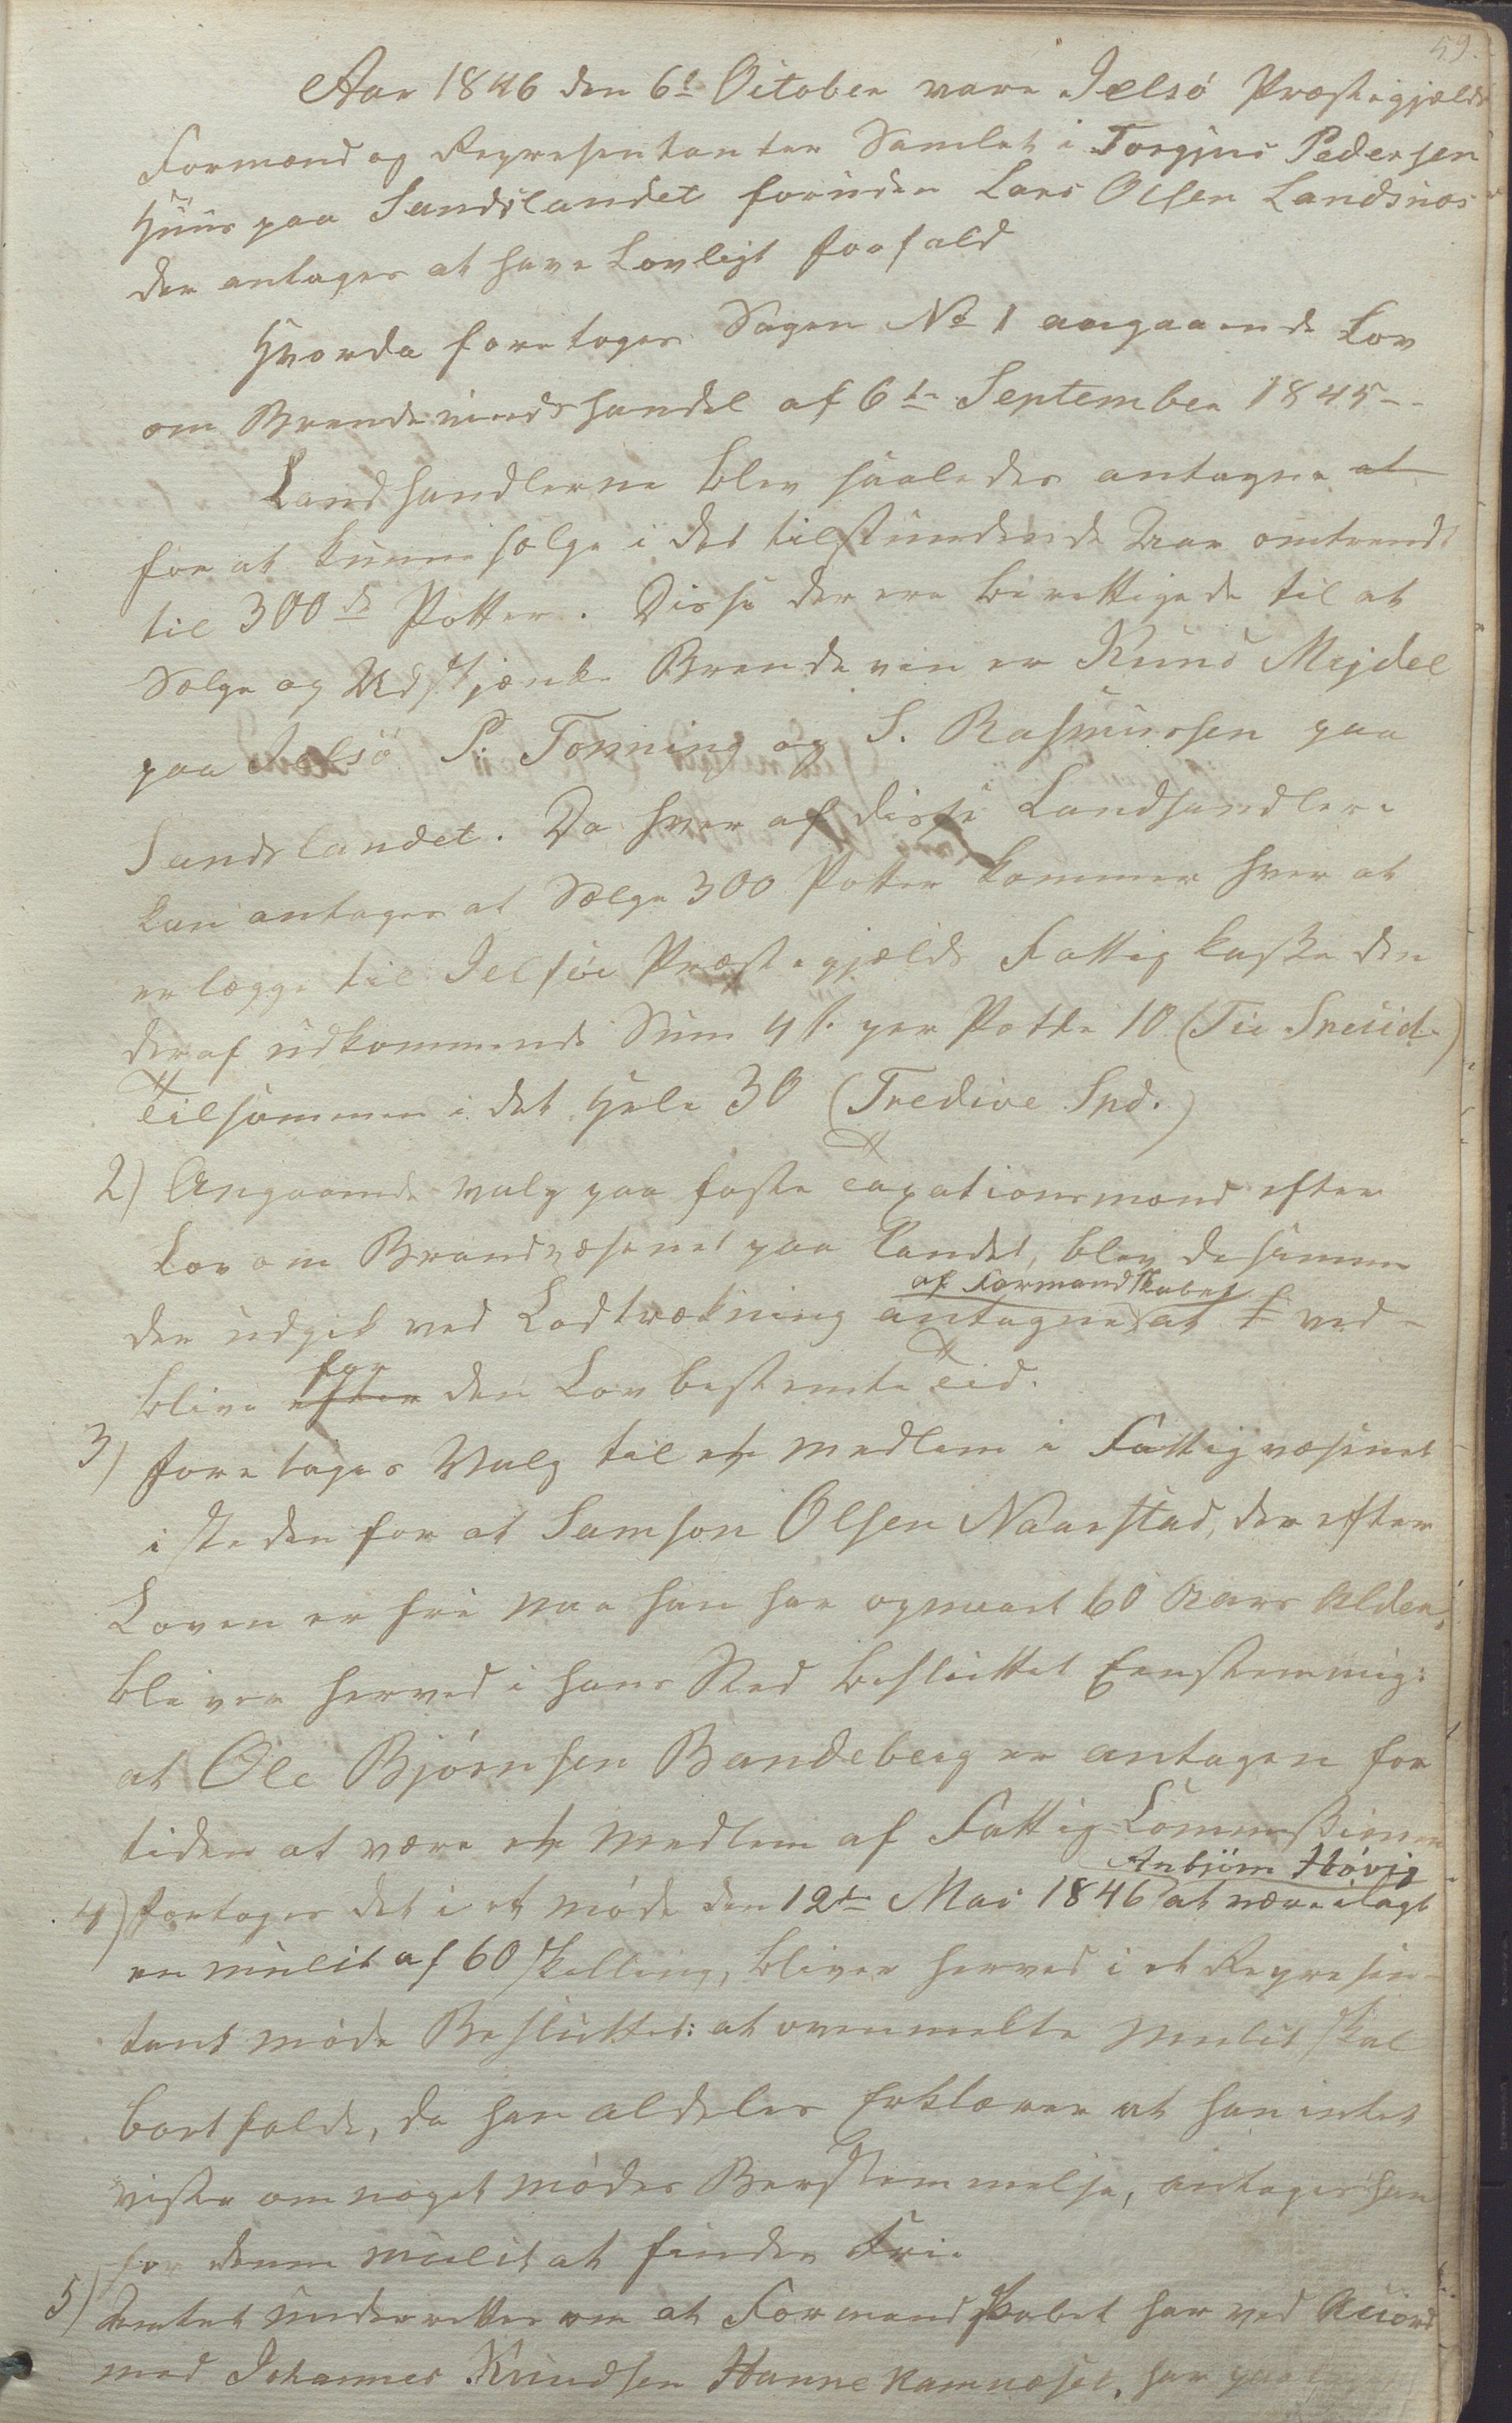 59.
Aar 1846 den 6t October vare Jelsø Præstegjælds
Formænd og Repræsentanter Samlet i Torgjus Pedersen
Huus paa Sandslandet foruden Lars Olsen Landsnæs
der antages at have Lovligt forfald
Hvorda foretages Sagen No 1 angaaende Lov
om Brendeviinshandel af 6te September 1845 --
Landhandlerne blev saaledes antagne at
for at kunne sælge i det tilstundende Aar omtrendt
til 300de Potter. Disse der ere berettigede til at
Sælge og Udskjænke Brendevin er Knud Mejdel
paa Jelsø P. Tonning og S. Rasmussen paa
Sandslandet. Da hver af disse Landhandlere
kan antages at Sælge 300 Potter kommer hver at
erlægge til Jelsøe Præstegjælds Fattigkasse den
deraf udkommende Sum 4 s. per Potte 10 (Tie Speicd.)
Tilsammen i det Hele 30 (Tredive Spd.)
2) Angaaende valg paa faste Taxationsmænd efter
Lov om Brandvæsenet paa Landet, blev de samme
der udgik ved Lodtrækning antagne af Formandskabet at f ved-
blive efter for den Lov bestemte Tid.
3) foretages Valg til et medlem i Fattigvæsenet
i steden for at Samson Olsen Naarstad, der efter
Loven er fri naar han har opnaaet 60 Aars Alder,
bliver herved i hans Sted besluttet Eenstemmig:
at Ole Bjørnsen Bandeberg er antagen for
tiden at være et medlem af Fattig Commissionen
4) foretages det i et møde den 12te Mai 1846 Anbjørn Høvig at være ilagt
en mulct af 60 skelling, bliver herved i et Represen-
tant møde Besluttet: at ovenmelte mulct skal
bortfalde, da han aldeles Erklærer at han intet
viste om noget mødes Berstemmelse, antages han
for denne mulct at findes Fri.
5) Amtet underrettes om at Formandskabet har ved Accord
med Johannes Knudsen Hannekamnæset, har paa